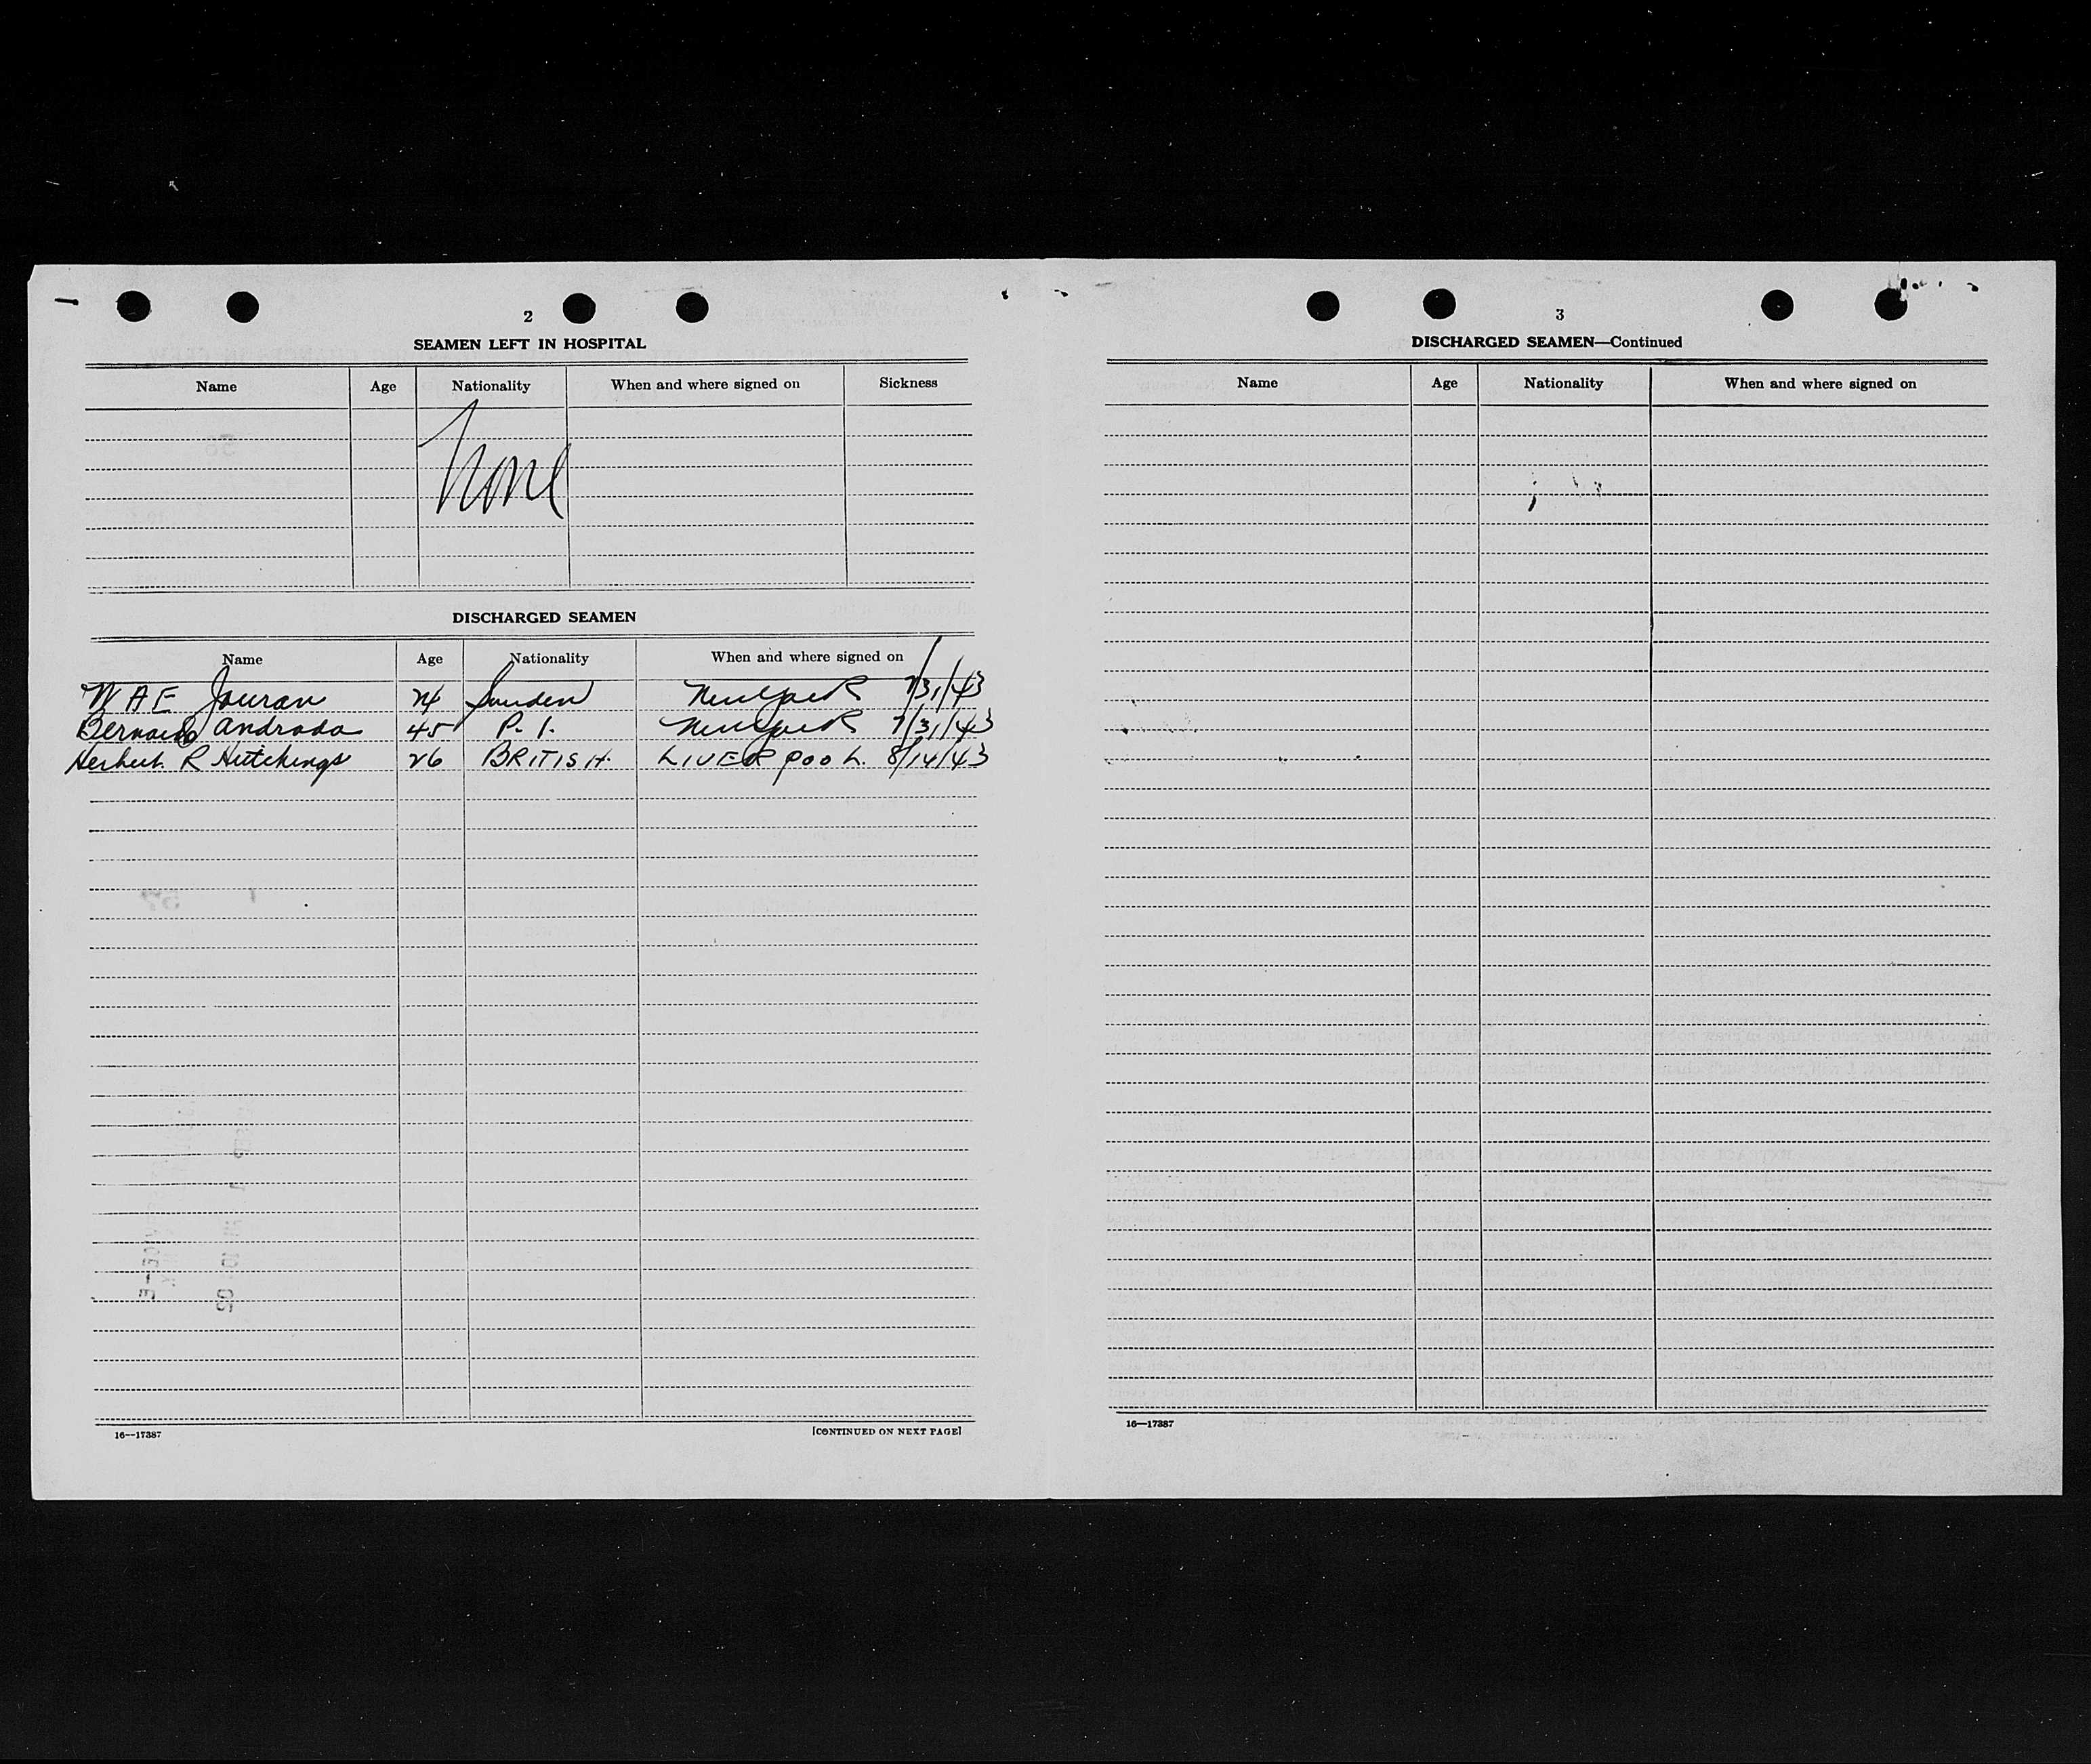 2
SEAMEN LEFT IN HOSPITAL
Name Age Nationality When and where signed on Sickness
None
DISCHARGED SEAMEN
Name Age Nationality When and where signed on
W A E Jouran 24 Sweden New York 7/31/43
Bernardo Andrada 45 P. I. New York 7/31/43
Herbert R Hutchings 26 BRITISH. LIVERPOOL. 8/14/43
16—17387 [CONTINUED ON NEXT PAGE]
3
DISCHARGED SEAMEN—Continued
Name Age Nationality When and where signed on
16—17387